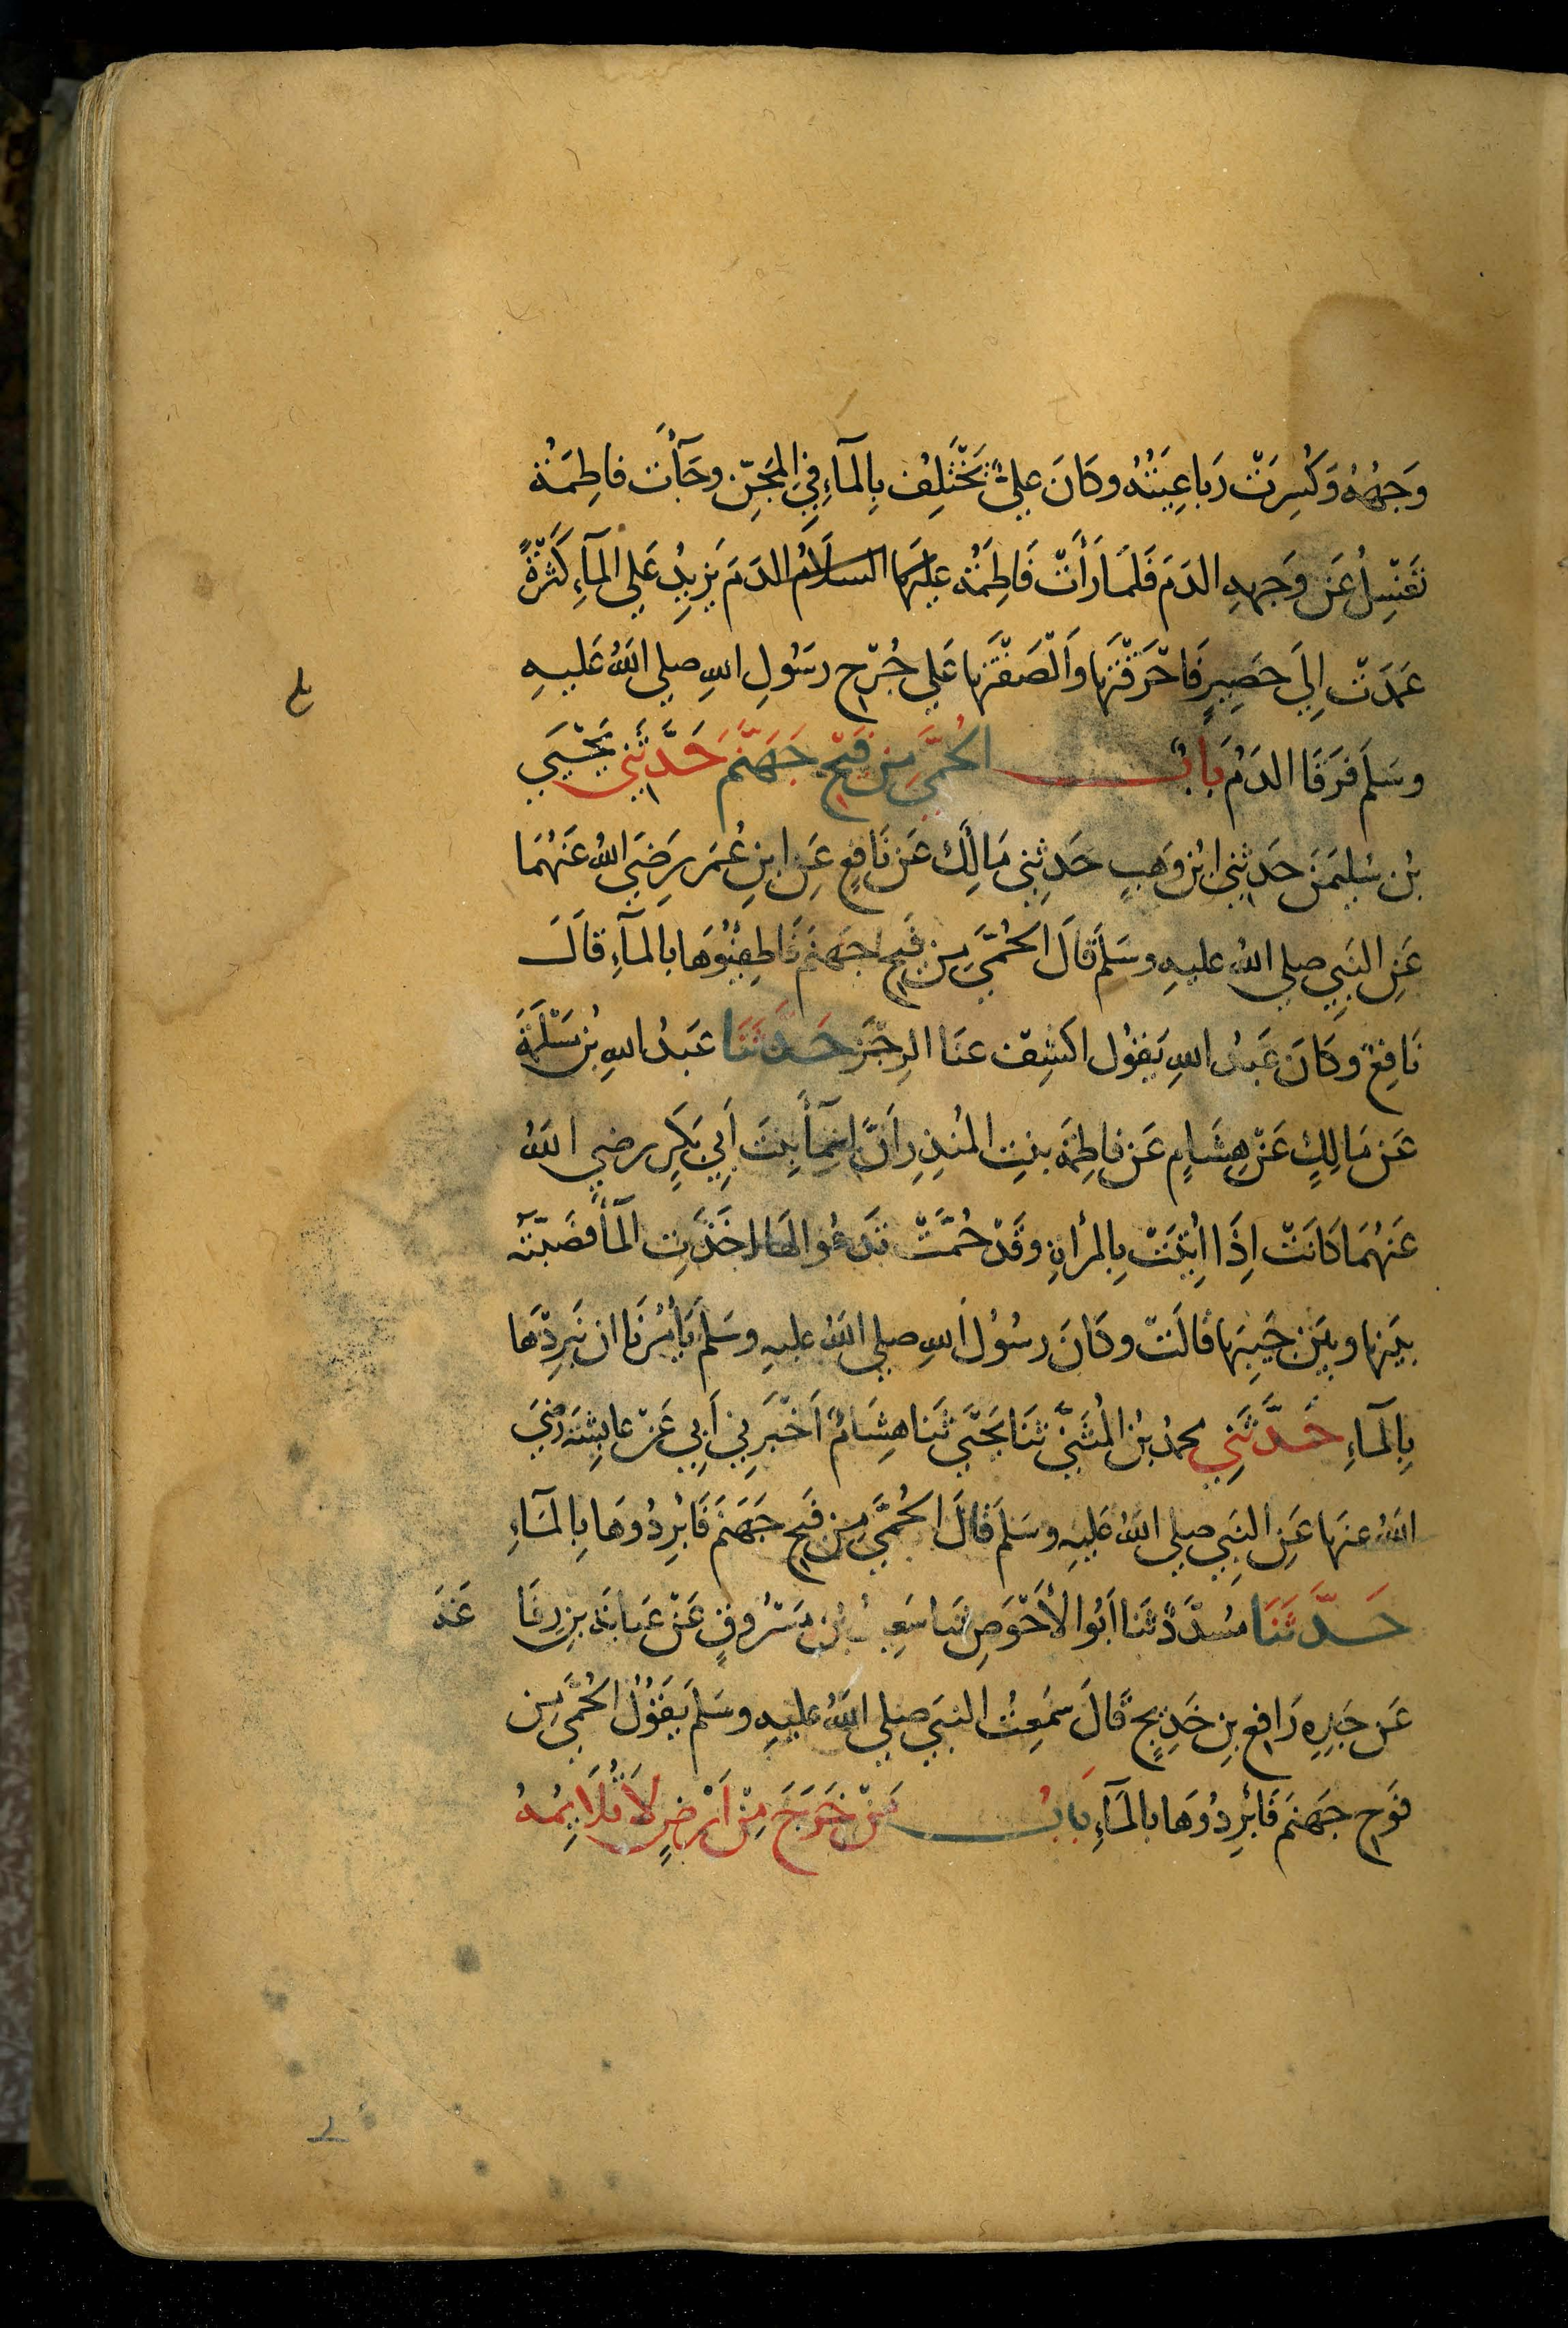 وَجْهُهُ وَكُسِرَتْ رَبَاعِيَتُهُ وكَانَ عَلِيٌّ يَخْتَلِفُ بِالْمَآءِ فِي الْمِجَنِّ وجَآءَت فاطِمَةُ
تَغْسِلُ عَن وَجهِهِ الدَمَ فَلَمَّا رَأَتْ فَاطِمَةُ عليهَا السلَامُ الدَمَ يَزِيدُ عَلى المآءِ كَثْرَةً
عَمَدَتْ إِلَى حَصِيرٍ فَاحْرَقَتْهَا وَالْصَقَتْهَا عَلى جُرْحِ رسَُولِ اللهِ صلى اللهُ عَليهِ
وسَلم فَرَقَا الدَمُ بَابُ الحُمَّى مِن فَيْحِ جَهَنَّمَ حَدَّثَنِي يَحْيَى
بْن سُلَيمَنَ حَدثِنِي ابْن وَهبٍ حَدثِنِي مَالِكٌ عَن نَافِعٍ عَنِ ابنِ عُمَر رَضِيَ اللهُ عَنْهُمَا
عَنِ النَبِي صلى اللهُ عليهِ وسَلمَ قَالَ الحُمَّى مِن فَيحِ جَهَنمَ فَاطِفِئُوهَا بالمآءِ قَالَ
نَافِعٌ وكَانَ عَبدُ اللهِ يَقُول اكشِف عنَا الرِجْزَ حَدَّثَنَا عَبدُ اللهِ بْن مَسْلَمَةَ
عَن مَالِكٍ عَن هِشَامٍ عَن فاطِمَةَ بنتِ المُنذِرِ أَنَّ اسْمآءَ بِنتَ أَبِي بَكرٍ رضِي اللهُ
عَنهُمَا كَانَتْ اِذَا اُتِيَتْ بِالمرأةِ وقَدْ حُمَّتْ تَدعُوا لهَا اخَذَتِ المآءَ فصَبَّتهُ
بيَنها وبيَن جَيبِهَا قالَتْ وكَانَ رسُوُل اللهِ صلى اللهُ عليهِ وسَلمَ يَأمُرُنَا ان نَبرِدَهَا
بِالمآءِ حَدَّثَنِي محمدُ بْنُ المُثَنَّى ثَنَا يَحيَى ثَنَا هِشَامٌ اَخْبَرَنِي أَبِي عَنْ عايِشَةَ رضيَ
اللهُ عنهَا عَنِ النَبِي صلى اللهُ عَليهِ وسَلمَ قَالَ الحُمَّى مِن فَيحِ جَهَنمَ فَابْرِدُوهَا بِالمآءِ
حَدَّثَنَا مُسَدَّدٌ ثَنَا اَبُوا الأَحْوَصِ ثنا سَعِيدُ بْن مَسْرُوقٍ عَنْ عَبايَةَ بنِ رِفَا عَةَ
عَن جَدِهِ رَافِعِ بنِ خَدِيجٍ قَالَ سَمِعتُ النبَيَ صلى اللهُ عليهِ وسَلمَ يَقُوُل الحُمَّى مِن
فَوحِ جَهَنمَ فَابْرِدُوهَا بالمآءِ بَابُ مَنْ خَرَجَ مِنْ اَرْضٍ لاَ تُلَايِمُهُ